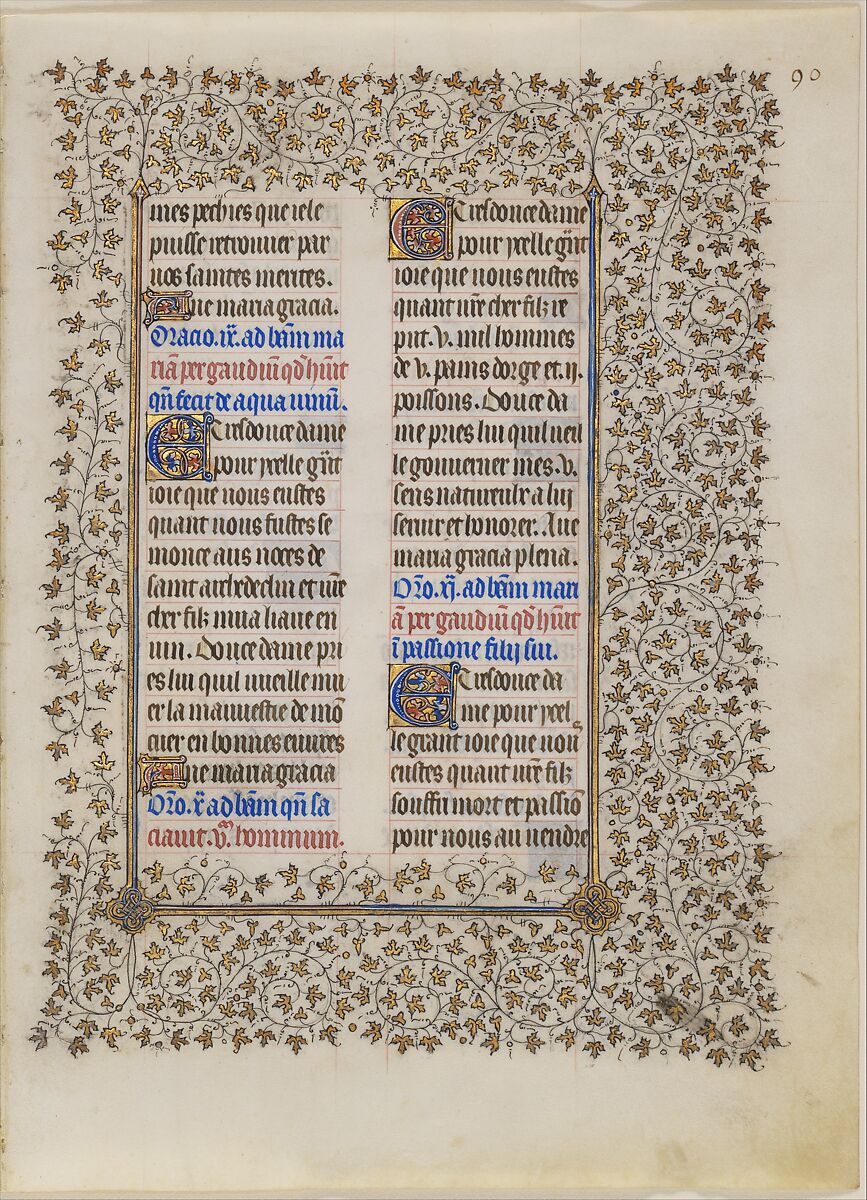 90
mes pechies que ie le
puisse retrouuer par
uos saintes merites.
Aue maria gracia.
Oracio .ix. ad bēm ma
riā per gaudiū qd̄ hūit
qn̄ fecit de aqua uinū.
E Tresdouce dame
pour ycelle gn̄t
ioie que uous eustes
quant uous fustes se
monce aus noces de
saint archedeclin et ur̄e
cher filz mua liaue en
uin. Douce dame pri
es lui quil uueille mu
er la mauuestie de mō
cuer en bonnes euures
Aue maria gracia
Oro. x̄ ad bēam qn̄ sa
ciauit .v.m hominum.
E Tresdouce dame
pour ycelle gn̄t
ioie que uous eustes
quant ur̄e cher filz re
put .v. mil hommes
de .v. pains dorge et .ij.
poissons. Douce da
me pries lui quil ueil
le gouuerner mes .v.
sens natureulx a luy
seruir et honorer. Aue
maria gracia plena.
Oro. xj. ad bēam mari
ā per gaudiū qd̄ hūit
ī passione filij sui.
E Tresdouce da
me pour ycel
le grant ioie que uou
eustes quant ur̄e filz
souffri mort et passio
pour nous au uendre